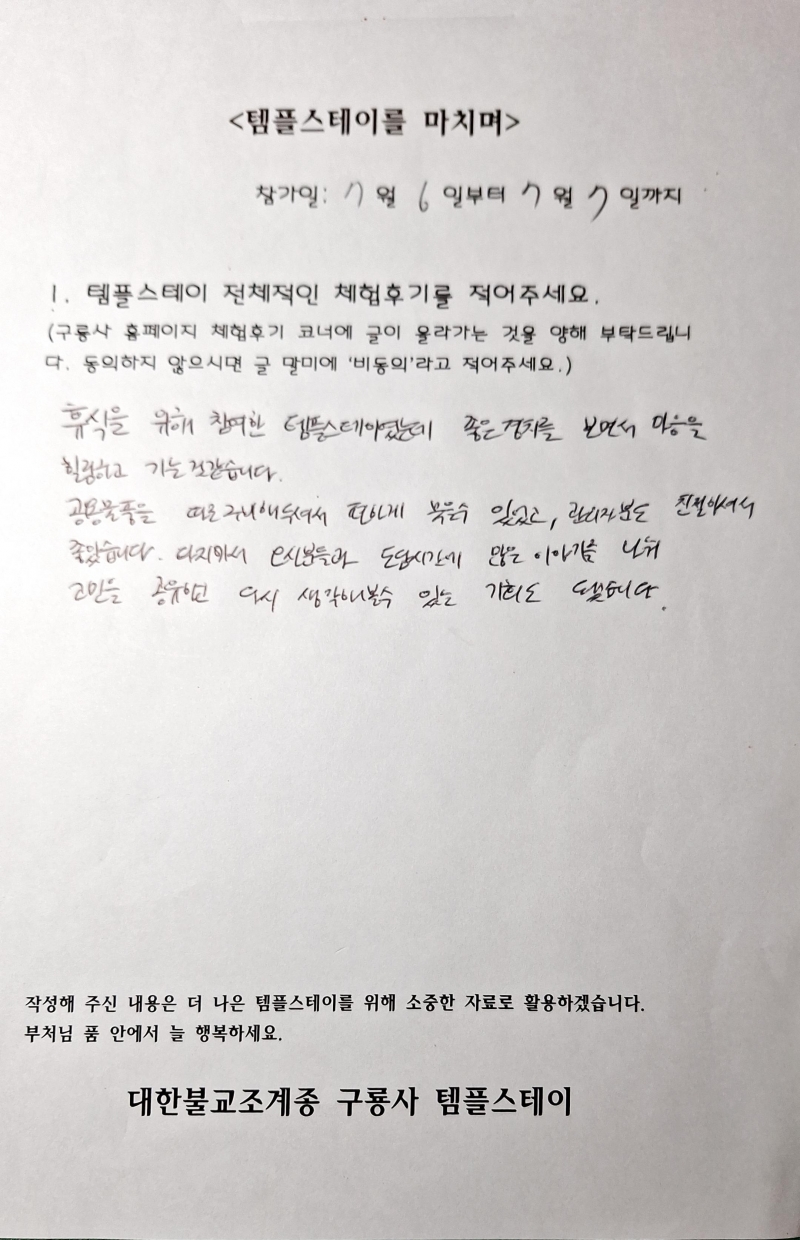 <템플스테이를 마치며>
참가일: 7월 6일부터 7월 7일까지
1. 템플스테이 전체적인 체험후기를 적어주세요.
(구룡사 홈페이지 체험후기 코너에 글이 올라가는 것을 양해 부탁드립니
다. 동의하지 않으시면 글 말미에 '비동의'라고 적어주세요.)
휴식을 위해 참여한 템플스테이였는데 좋은경치를 보면서 마음을
힐링하고 가는것같습니다.
공용물품을 따로 구비해두셔서 편하게 묵을수 있었고, 관리자분도 친절하셔서
좋았습니다. 다지마서 오신분들과 도담시간에 많은 이야기를 나눠
고민을 공유하고 다시 생각해볼수 있는 기회도 됐습니다.
작성해 주신 내용은 더 나은 템플스테이를 위해 소중한 자료로 활용하겠습니다.
부처님 품 안에서 늘 행복하세요.
대한불교조계종 구룡사 템플스테이